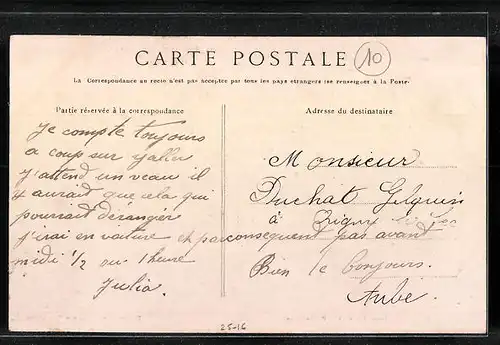 CARTE POSTALE
10
La Correspondance au recto n'est pas acceptée par tous les pays étrangers (se renseigner à la Poste)
Partie réservée à la correspondance
Je compte toujours
a coup sur y aller
J'attend un veau il
y aurait que cela qui
pourrait deranger
j'irai en voiture et parconsequent pas avant
midi 1/2 ou 1 heure
Julia
Adresse du destinataire
Monsieur
Duchat Gelquin
à
Bien le bonjours.
Aube
25-16